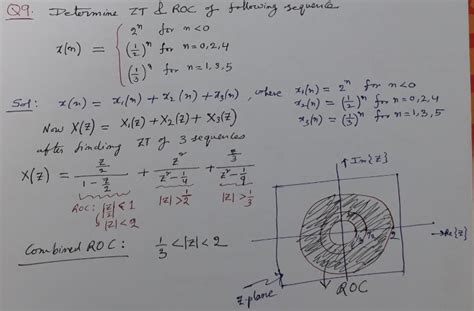 Q9. Determine ZT & ROC of following sequence
x(n) = { 2^n for n<0
(1/2)^n for n=0,2,4
(1/3)^n for n=1,3,5
Sol: x(n) = x₁(n) + x₂(n) + x₃(n), where x₁(n) = 2^n for n<0
x₂(n) = (1/2)^n for n=0,2,4
x₃(n) = (1/3)^n for n=1,3,5
Now X(z) = X₁(z) + X₂(z) + X₃(z)
after finding ZT of 3 sequences
X(z) = (z/2)/(1 - z/2) + z²/(z² - 1/4) + (z/3)/(z² - 1/9)
ROC: |z/2| < 1 |z| > 1/2 |z| > 1/3
Im{z}
Combined ROC: 1/3 < |z| < 2
2
Re{z}
z plane
ROC